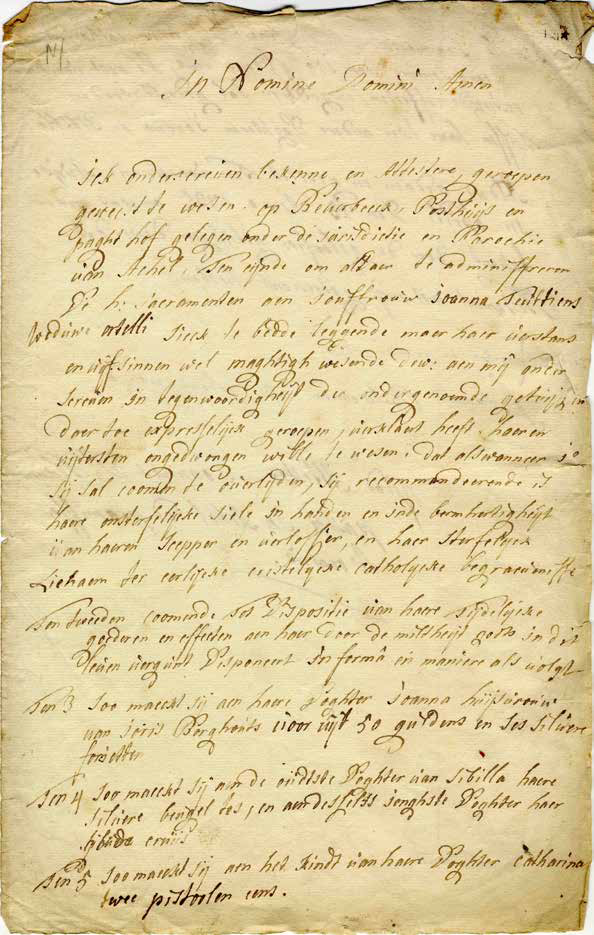 In Nomine Domini Amen
ick onderscreven bekenne en Attestere, geroepen
geweest te wesen op Beverbeeck, Posthuijs en
paght hof gelegen onder de jurisdictie en Parochie
van Achel, Ten eijnde om aldaer te administreren
de h: Sacramenten aen jouffrouw joanna
Weduwe sieck te bedde leggende maer haer verstant
en vijf sinnen wel maghtigh wesende dew: aen mij onder
screven in tegenwoordigheijt der ondergenoemde getuijgen
daer toe expresselijck geroepen, verclaert heeft haeren
uijtersten ongedwongen wille te wesen. Dat alswanneer
sij sal coomen te overlijden, sij recommandeerende is
haere onsterfelijcke siele in handen en inde bermhertigheijt
van haeren scepper en verlosser, en haer sterfelijck
Lichaem ter eerlijcke cristelijcke catholijcke begraevenisse
Ten tweeden coomende tot Dispositie van haere tijdelijcke
goederen en effecten aen haer door de miltheijt godts in dit
leven vergunt Disponeert in forma en maniere als volgt
Ten 3 soo maeckt sij aen haere doghter joanna huijsvrouw
van joris Berghouts voor uijt 50 guldens en ses silvere
forsetten
Ten 4 soo maeckt sij aen de oudtste Doghter van Sibilla haere
silvere beugel tes, en aen desselfs jonghste Doghter haer
cruijs
Ten 5 soo maeckt sij aen het kindt van haere Doghter Catharina
twee pistoolen eens.